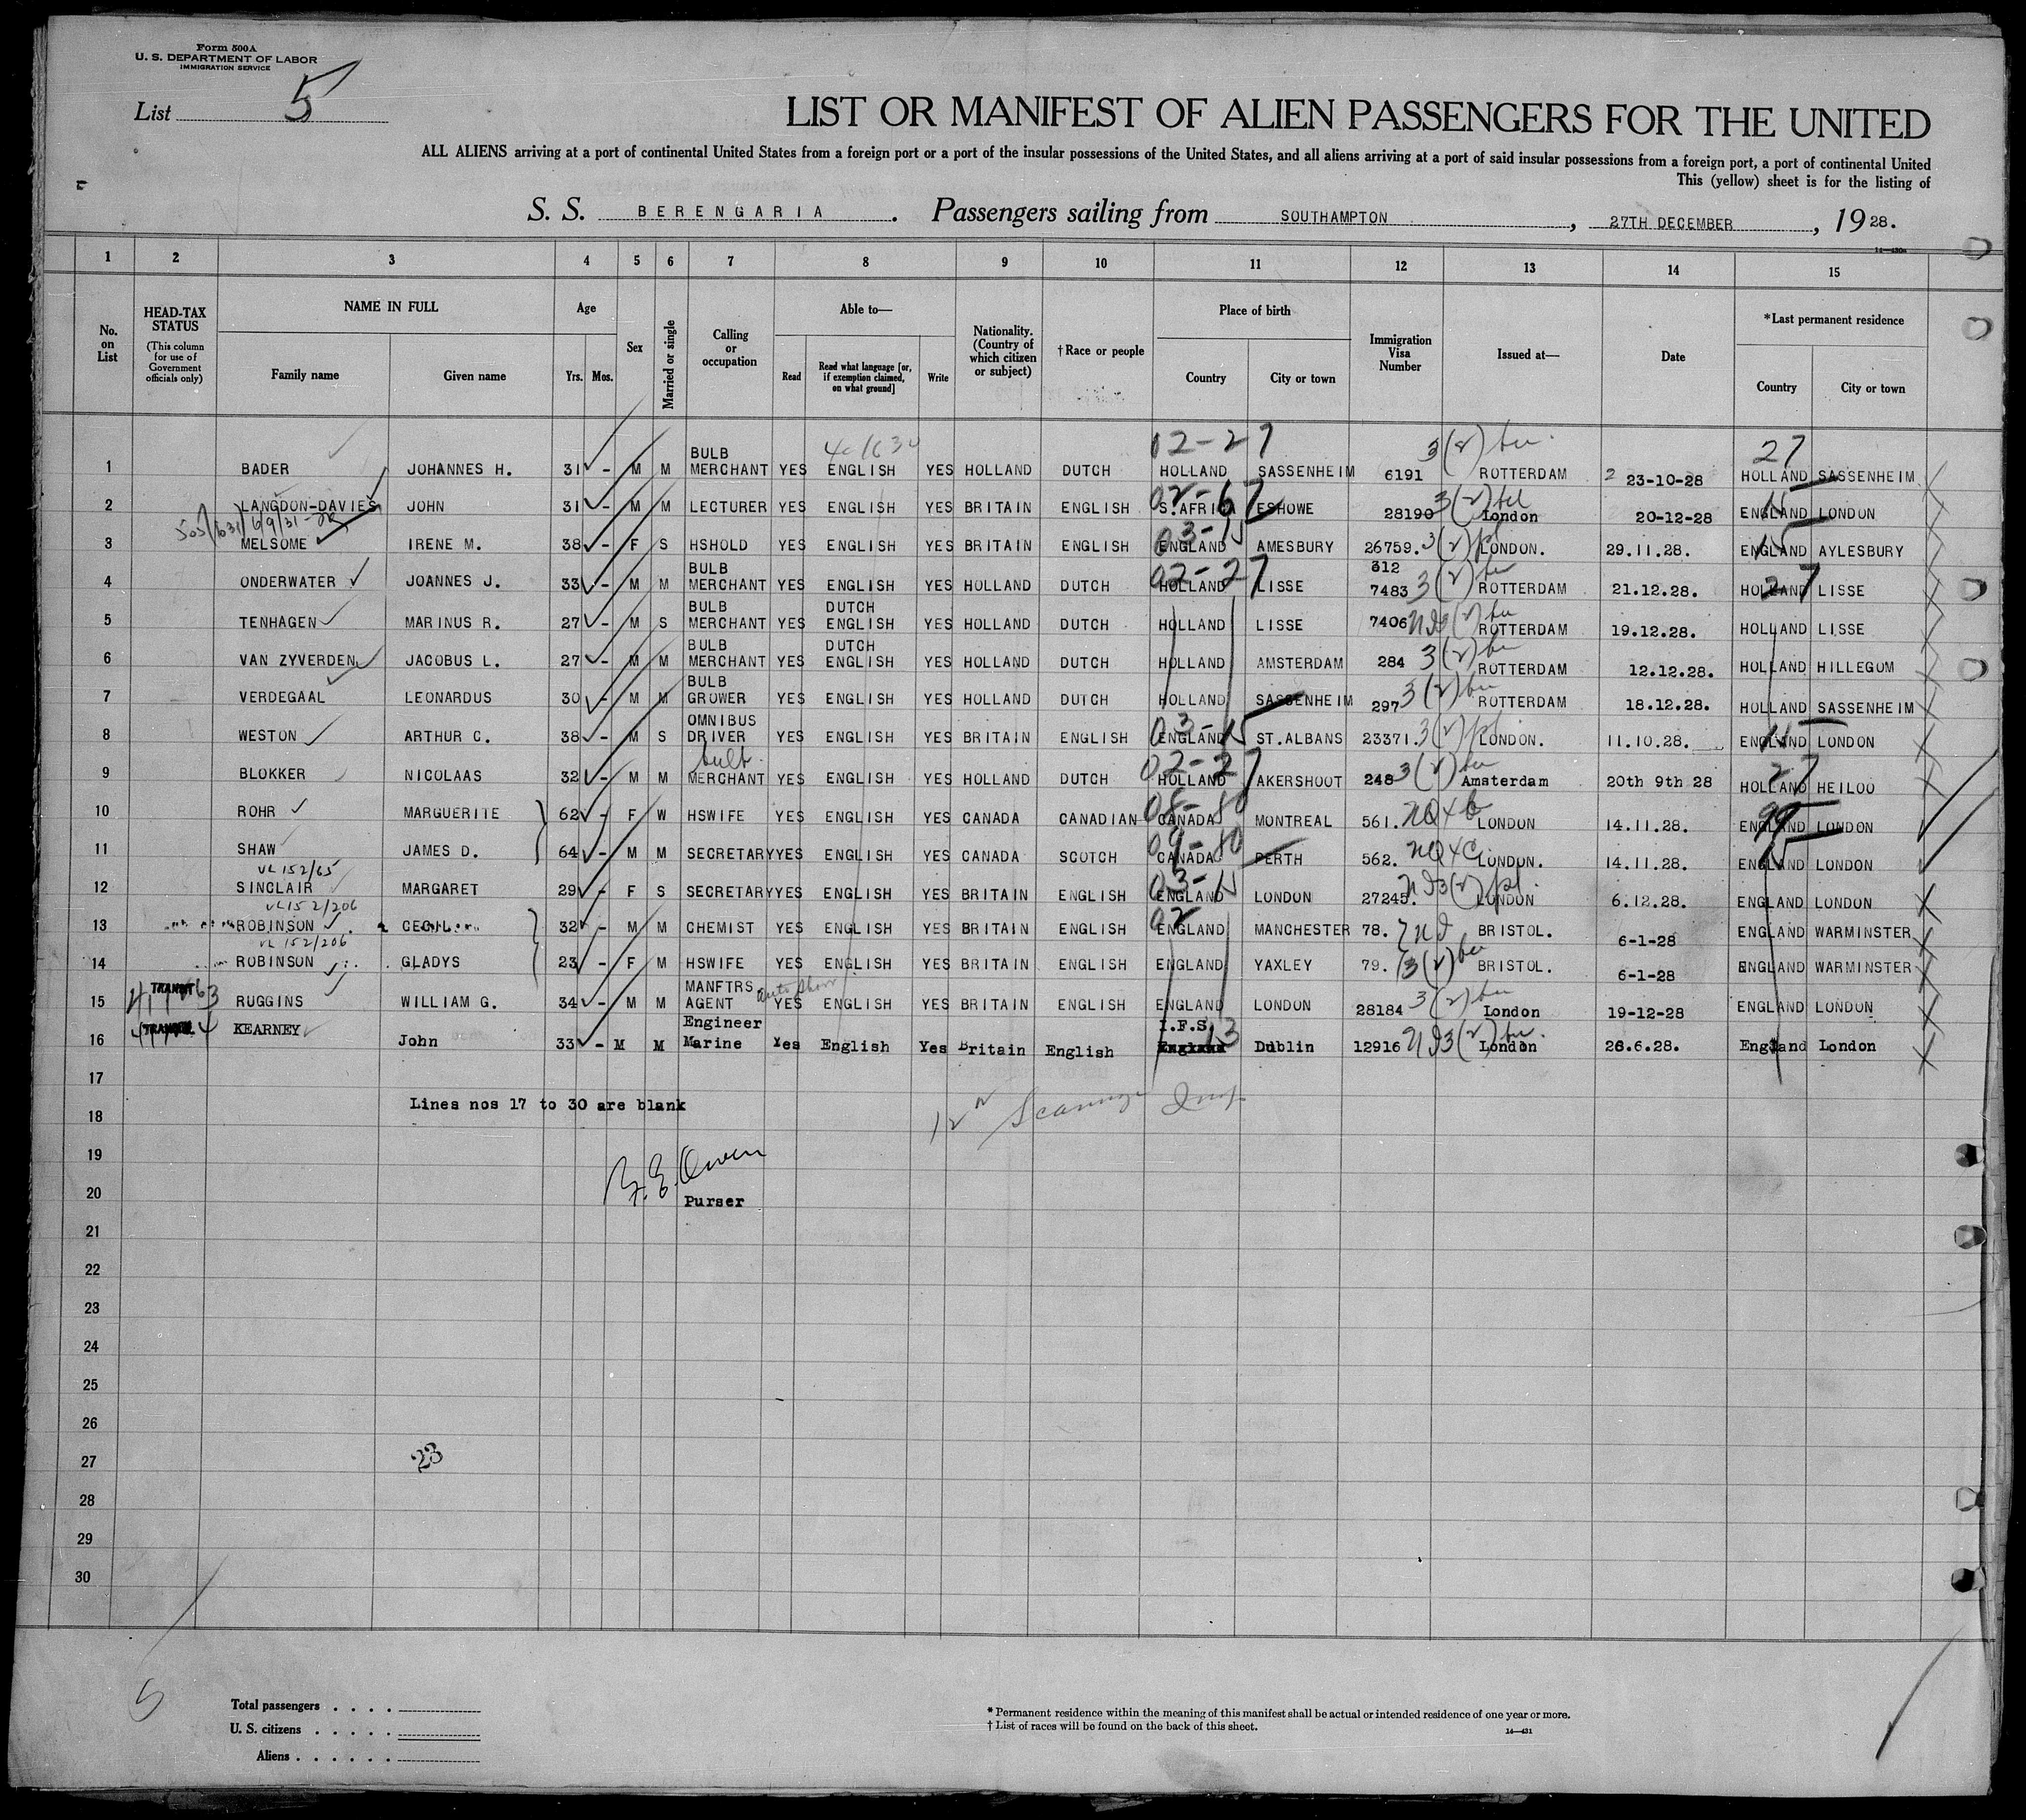 Form 500A
U. S. DEPARTMENT OF LABOR
IMMIGRATION SERVICE
List 5
LIST OR MANIFEST OF ALIEN PASSENGERS FOR THE UNITED
ALL ALIENS arriving at a port of continental United States from a foreign port or a port of the insular possessions of the United States, and all aliens arriving at a port of said insular possessions from a foreign port, a port of continental United
This (yellow) sheet is for the listing of
S. S. BERENGARIA. Passengers sailing from SOUTHAMPTON, 27TH DECEMBER, 1928.
14—430a
1 2 3 4 5 6 7 8 9 10 11 12 13 14 15
No. on List
HEAD-TAX STATUS (This column for use of Government officials only)
NAME IN FULL Family name Given name
Age Yrs. Mos.
Sex
Married or single
Calling or occupation
Able to— Read Read what language [or, if exemption claimed, on what ground] Write
Nationality. (Country of which citizen or subject)
† Race or people
Place of birth Country City or town
Immigration Visa Number
Issued at—
Date
*Last permanent residence Country City or town
12-27 27
1 BADER JOHANNES H. 31 - M M BULB MERCHANT YES ENGLISH YES HOLLAND DUTCH HOLLAND SASSENHEIM 6191 ROTTERDAM 23-10-28 HOLLAND SASSENHEIM
2 LANGDON-DAVIES JOHN 31 - M M LECTURER YES ENGLISH YES BRITAIN ENGLISH S.AFRICA ESHOWE 28190 London 20-12-28 ENGLAND LONDON
3 MELSOME IRENE M. 38 - F S HSHOLD YES ENGLISH YES BRITAIN ENGLISH ENGLAND AMESBURY 26759. LONDON. 29.11.28. ENGLAND AYLESBURY
4 ONDERWATER JOANNES J. 33 - M M BULB MERCHANT YES ENGLISH YES HOLLAND DUTCH HOLLAND LISSE 312 7483 ROTTERDAM 21.12.28. HOLLAND LISSE
5 TENHAGEN MARINUS R. 27 - M S BULB MERCHANT YES DUTCH ENGLISH YES HOLLAND DUTCH HOLLAND LISSE 7406 ROTTERDAM 19.12.28. HOLLAND LISSE
6 VAN ZYVERDEN JACOBUS L. 27 - M M BULB MERCHANT YES DUTCH ENGLISH YES HOLLAND DUTCH HOLLAND AMSTERDAM 284 ROTTERDAM 12.12.28. HOLLAND HILLEGOM
7 VERDEGAAL LEONARDUS 30 - M M BULB GROWER YES ENGLISH YES HOLLAND DUTCH HOLLAND SASSENHEIM 297 ROTTERDAM 18.12.28. HOLLAND SASSENHEIM
8 WESTON ARTHUR C. 38 - M S OMNIBUS DRIVER YES ENGLISH YES BRITAIN ENGLISH ENGLAND ST.ALBANS 23371. LONDON. 11.10.28. ENGLAND LONDON
9 BLOKKER NICOLAAS 32 - M M bulb MERCHANT YES ENGLISH YES HOLLAND DUTCH HOLLAND AKERSHOOT 248 Amsterdam 20th 9th 28 HOLLAND HEILOO
10 ROHR MARGUERITE 62 - F W HSWIFE YES ENGLISH YES CANADA CANADIAN CANADA MONTREAL 561. LONDON 14.11.28. ENGLAND LONDON
11 SHAW JAMES D. 64 - M M SECRETARY YES ENGLISH YES CANADA SCOTCH CANADA PERTH 562. LONDON. 14.11.28. ENGLAND LONDON
VL 152/65
12 SINCLAIR MARGARET 29 - F S SECRETARY YES ENGLISH YES BRITAIN ENGLISH ENGLAND LONDON 27245. LONDON 6.12.28. ENGLAND LONDON
VL 152/206
13 ROBINSON CECIL 32 - M M CHEMIST YES ENGLISH YES BRITAIN ENGLISH ENGLAND MANCHESTER 78. BRISTOL. 6-1-28 ENGLAND WARMINSTER
VL 152/206
14 ROBINSON GLADYS 23 - F M HSWIFE YES ENGLISH YES BRITAIN ENGLISH ENGLAND YAXLEY 79. BRISTOL. 6-1-28 ENGLAND WARMINSTER
15 TRANSIT RUGGINS WILLIAM G. 34 - M M MANFTRS AGENT YES ENGLISH YES BRITAIN ENGLISH ENGLAND LONDON 28184 London 19-12-28 ENGLAND LONDON
16 KEARNEY John 33 - M M Engineer Marine Yes English Yes Britain English I.F.S. Dublin 12916 London 26.6.28. England London
17
Lines nos 17 to 30 are blank
18
19
20 Purser
21
22
23
24
25
26
27 23
28
29
30
5
Total passengers . . . .
U. S. citizens . . . . .
Aliens . . . . . .
* Permanent residence within the meaning of this manifest shall be actual or intended residence of one year or more.
† List of races will be found on the back of this sheet. 14—431